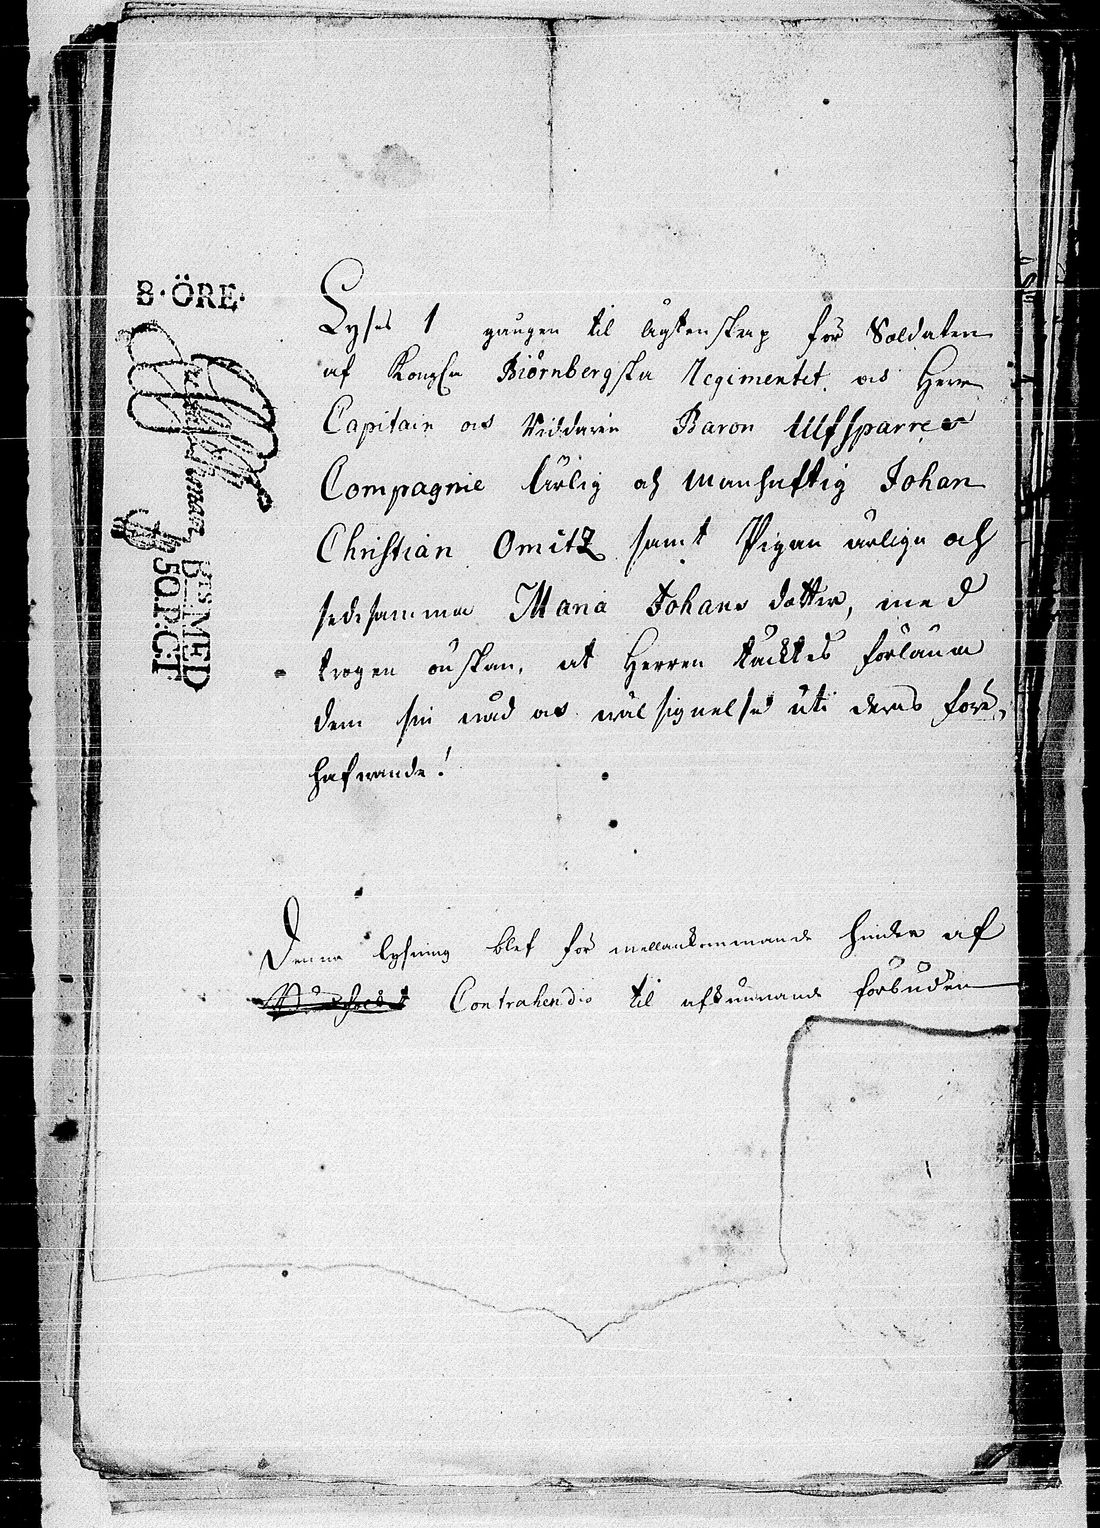 8·ÖRE·
BES MED
50.P:CT
Lyses 1 gången til ägtenskap för Soldaten
af Kongl:a Biörnbergska Regimentet os Herr
Capitain os Riddaren Baron Ulfsparres
Compagnie ärlig och manhaftig Johan
Christian Omitz samt Pigan ärliga och
sedesamma Maria Johans dotter, med
trogen önskan, at Herren täcktes förläna
dem sin nåd os wälsignelse uti deras före,
hafwande!
Denna lysning blef för mellankommande hinder af
Contrahendis til afkunnande förbuden